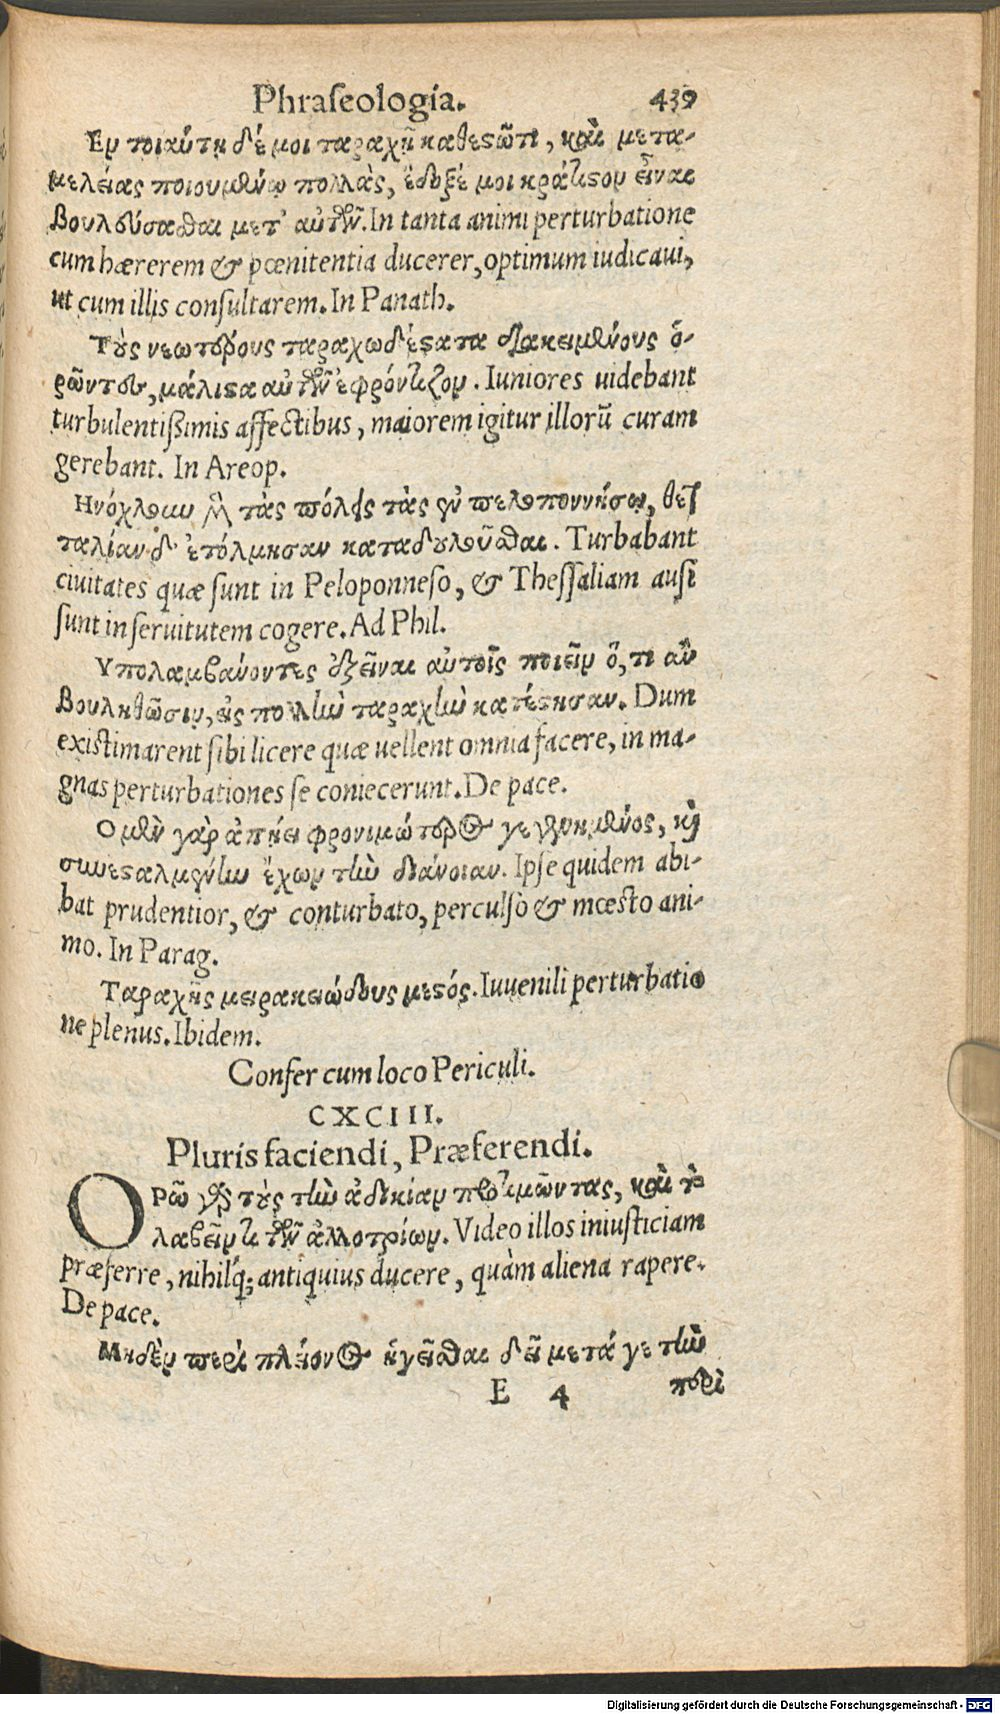 Phraseologia. 439
Εν τοιαύτῃ δέ μοι ταραχῇ καθεστῶτι, καὶ μετα-
μελείας ποιουμένῳ πολλὰς, ἔδοξέ μοι κράτιστον εἶναι
βουλεύσασθαι μετ' αὐτῶν. In tanta animi perturbatione
cum hærerem & pœnitentia ducerer, optimum iudicaui,
ut cum illis consultarem. In Panath.
Τοὺς νεωτέρους ταραχωδέστατα διακειμένους ὁ-
ρῶντες, μάλιστα αὐτῶν ἐφρόντιζον. Iuniores uidebant
turbulentißimis affectibus, maiorem igitur illorũ curam
gerebant. In Areop.
Ηνόχλουν μὲν τὰς πόλεις τὰς ἐν πελοποννήσῳ, θετ
ταλίαν δ' ἐτόλμησαν καταδουλοῦσθαι. Turbabant
ciuitates quæ sunt in Peloponneso, & Thessaliam ausi
sunt in seruitutem cogere. Ad Phil.
Υπολαμβάνοντες ἐξεῖναι αὐτοῖς ποιεῖν ὅ, τι ἂν
βουληθῶσιν, εἰς πολλὴν ταραχὴν κατέστησαν. Dum
existimarent sibi licere quæ uellent omnia facere, in ma-
gnas perturbationes se coniecerunt. De pace.
Ο μὲν γὰρ ἀπῄει φρονιμώτερος γεγενημένος, καὶ
συνεσταλμένην ἔχων τὴν διάνοιαν. Ipse quidem abi-
bat prudentior, & conturbato, perculso & mœsto ani-
mo. In Parag.
Ταραχῆς μειρακιώδους μεστός. Iuuenili perturbatio
ne plenus. Ibidem.
Confer cum loco Periculi.
CXCIII.
Pluris faciendi, Præferendi.
Ορῶ γὰρ τοὺς τὴν ἀδικίαν προτιμῶντας, καὶ τὸ
λαβεῖν τι τῶν ἀλλοτρίων. Video illos iniusticiam
præferre, nihilq́; antiquius ducere, quàm aliena rapere.
De pace.
Μηδὲν περὶ πλείονος ἡγεῖσθαι δεῖ μετά γε τὴν
E 4 περὶ
Digitalisierung gefördert durch die Deutsche Forschungsgemeinschaft - DFG